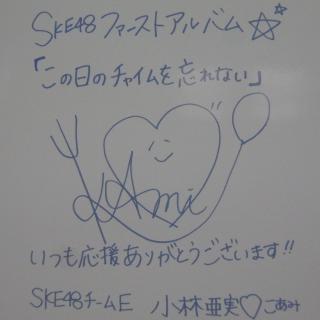 SKE48 ファーストアルバム☆☆
「この日のチャイムを忘れない」
Ami
いつも応援ありがとうございます!!
SKE48チームE 小林亜実♡こあみ